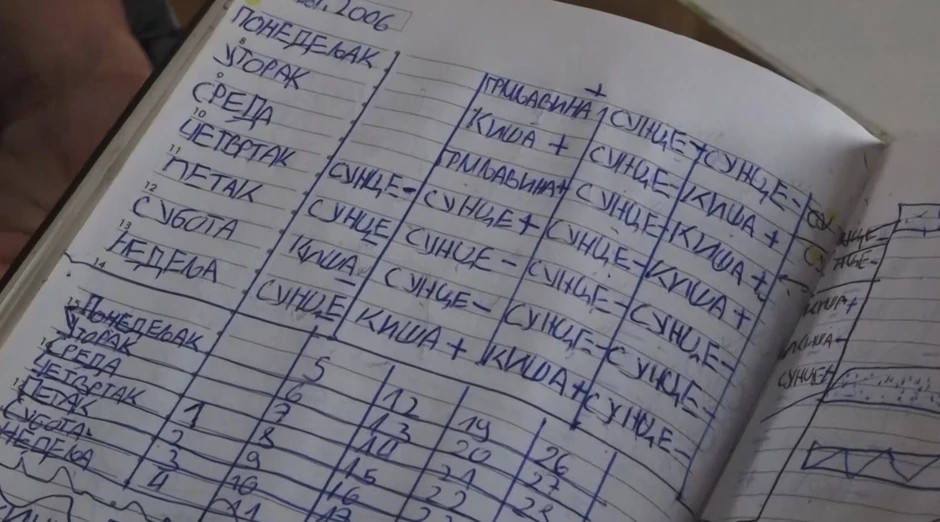 2006
ПОНЕДЕЉАК ГРМЉАВИНА + СУНЦЕ+ СУНЦЕ-
8
УТОРАК КИША + СУНЦЕ- КИША +
9
СРЕДА ГРМЉАВИНА+ СУНЦЕ- КИША +
10
ЧЕТВРТАК СУНЦЕ- СУНЦЕ + СУНЦЕ- КИША +
11
ПЕТАК СУНЦЕ СУНЦЕ - СУНЦЕ- СУНЦЕ-
12
СУБОТА КИША СУНЦЕ- СУНЦЕ- СУНЦЕ-
13
НЕДЕЉА СУНЦЕ КИША + КИША+ СУНЦЕ-
14
15
ПОНЕДЕЉАК 5 12 19 26
УТОРАК 6 13 20 27
16
СРЕДА 7 14 21 28
ЧЕТВРТАК 1 8 15 22
17
ПЕТАК 2 9 16
СУБОТА 3 10 17
НЕДЕЉА 4 11
КИША+
КИША-
СУНЦЕ+